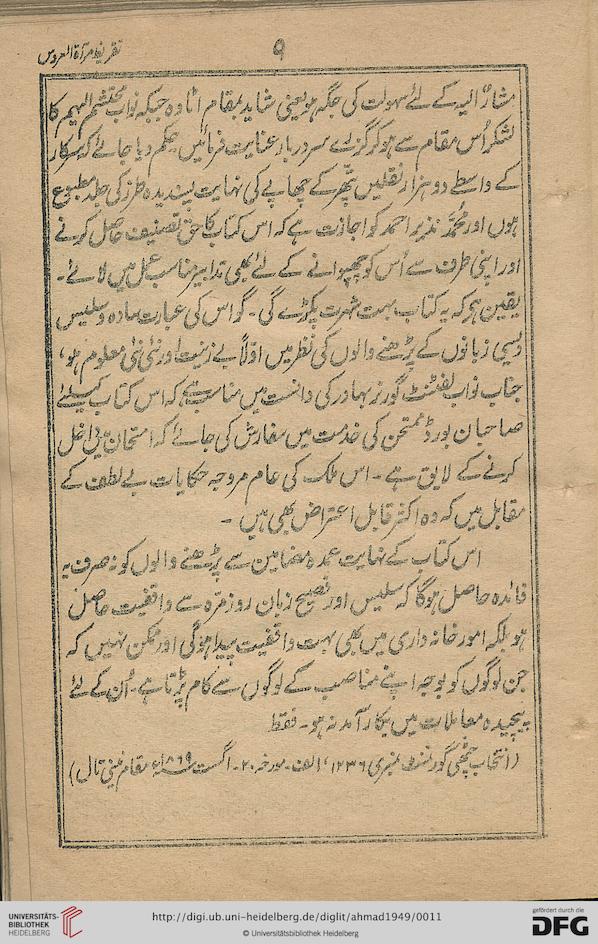 ۹
تقریظ مرآۃ العروس
مشارٌ الیہ کے لئے سہولت کی جگہ ہو یعنی شاید بمقام اٹاوہ جبکہ نواب محتشم الیہم کا
لشکر اُس مقام سے ہو کر گزرے سرِ دربار عنایت فرمائیں۔ حکم دیا جائے کہ سرکار
کے واسطے دو ہزار نقلیں پتھر کے چھاپے کی نہایت پسندیدہ طرز کی جلد مطبوع
ہوں اور محمّد نذیر احمد کو اجازت ہے کہ اس کتاب کا حق تصنیف حاصل کرنے
اور اپنی طرف سے اُس کو چھپوانے کے لئے بھی تدابیر مناسب عمل میں لائے۔
یقین ہو کہ یہ کتاب بہت شہرت پکڑے گی۔ گو اس کی عبارت سادہ و سلیس
دیسی زبانوں کے پڑھنے والوں کی نظر میں اوّلاً بے زینت اور نئی نئی معلوم ہو،
جناب نواب لفٹنٹ گورنر بہادر کی دانست میں مناسب ہے کہ اس کتاب کیلئے
صاحبان بورڈ ممتحن کی خدمت میں سفارش کی جائے کہ امتحان میں داخل
کرنے کے لایق ہے۔ اس ملک کی عام مروجہ حکایات بے لطف کے
مقابل میں کہ وہ اکثر قابل اعتراض بھی ہیں ۔
اس کتاب کے نہایت عمدہ مضامین سے پڑھنے والوں کو نہ صرف یہ
فائدہ حاصل ہوگا کہ سلیس اور فصیح زبان روزمرّہ سے واقفیت حاصل
ہو بلکہ امور خانہ داری میں بھی بہت واقفیت پیدا ہوگی اور ممکن نہیں کہ
جن لوگوں کو بوجہ اپنے مناصب کے لوگوں سے کام پڑتا ہے۔ اُن کے لئے
پیچیدہ معاملات میں بکار آمد نہ ہو۔ فقط
(انتخاب چٹھی گورنمنٹ نمبری ۱۲۳۶، الف۔ مورخہ ۲۰۔ اگست ۱۸۶۹ء مقام نینی تال)
UNIVERSITÄTS-
BIBLIOTHEK
HEIDELBERG
http://digi.ub.uni-heidelberg.de/diglit/ahmad1949/0011
© Universitätsbibliothek Heidelberg
gefördert durch die
DFG